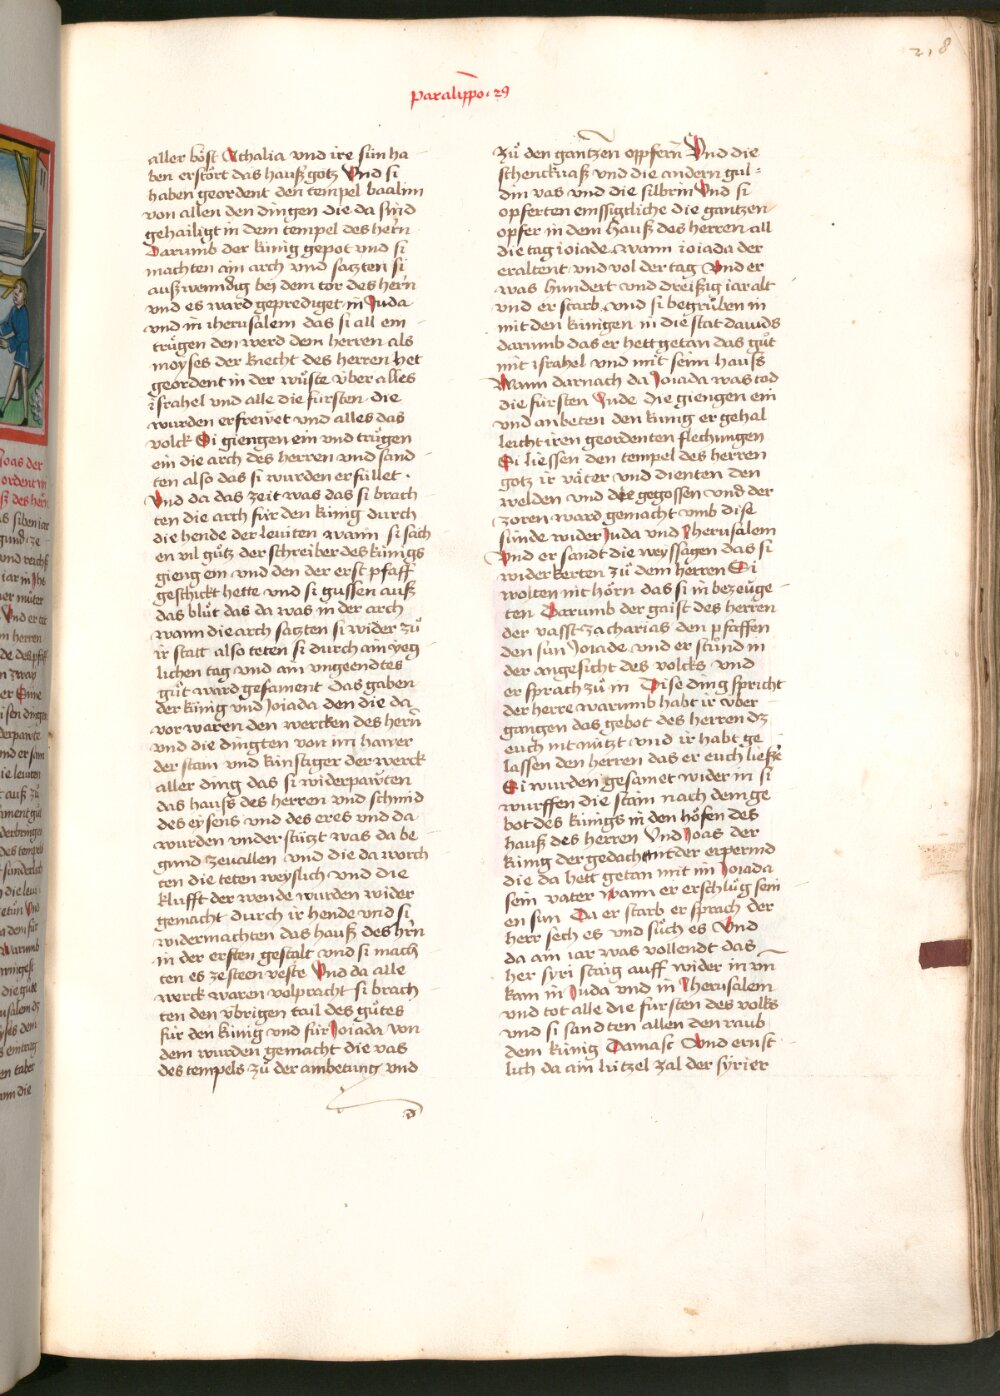 218
Paralippo. 29
aller böst Athalia vnd ire sün ha
ben erstört das hauß gotz Vnd si
haben geordent den tempel baalim
von allen den dingen die da sind
gehailigt in dem tempel des hern
Darumb der künig gepot vnd si
machten ain arch vnd satzten si
außwenndig bei dem tor des hern
vnd es ward geprediget in Juda
vnd in iherusalem das si all ein
trügen den werd dem herren als
moyses der knecht des herren het
geordent in der wüste über alles
israhel vnd alle die fürsten die
wurden erfrewet vnd alles das
volck Si giengen ein vnd trügen
ein die arch des herren vnd sand
ten also das si wurden erfüllet.
Vnd da das zeit was das si brach
ten die arch für den künig durch
die hende der leuiten wann si sach
en vil gutz der schreiber des künigs
gieng ein vnd den der erst pfaff
geschickt hette vnd si gussen auß
das blüt das da was in der arch
wann die arch satzten si wider zü
ir statt also teten si durch ain yeg
lichen tag vnd ain vngeendtes
güt ward gesament das gaben
der künig vnd Joiada den die da
vor waren den wercken des hern
vnd die dingten von im hawer
der stain vnd künstiger der werck
aller ding das si widerpawten
das hauss des herren vnd schmid
des eysens vnd des eres vnd da
wurden vnderstützt was da be
gund zeuallen vnd die da worch
ten die teten weyslich vnd die
klufft der wende wurden wider
gemacht durch ir hende vnd si
widermachten das hauß des hrn
in der ersten gestalt vnd si mach
ten es zesteen veste Vnd da alle
werck waren volpracht si brach
ten den vbrigen tail des gütes
für den künig vnd für Joiada von
dem wurden gemacht die vas
des tempels zü der ambetung vnd
zü den gantzen oppfern Vnd die
schenckuaß vnd die andern gul
din vas vnd die silbrin Vnd si
opferten emssigtliche die gantzen
opfer in dem hauß des herren all
die tag ioiade wann ioiada der
eraltent vnd vol der tag Vnd er
was hundert vnd dreißig iar alt
vnd er starb vnd si begrüben in
mit den künigen in die stat dauids
darumb das er hett getan das güt
mit israhel vnd mit seim hauss
Wann darnach da Joiada was tod
die fürsten Jude die giengen ein
vnd anbeten den künig er gehal
leicht iren geordenten flechungen
Si liessen den tempel des herren
gotz ir väter vnd dienten den
welden vnd der gegossen vnd der
zoren ward gemacht vmb dise
sünde wider Juda vnd Jherusalem
Vnd er sandt die weyssagen das si
widerkerten zü dem herren Si
wolten nit hörn das si in bezeuge
ten Darumb der gaist des herren
der vasst zacharias den pfaffen
den sün Joiade vnd er stünd in
der angesicht des volcks vnd
er sprach zü in Dise ding spricht
der herre warumb habt ir über
gangen das gebot des herren dz
euch nit nützt vnd ir habt ge
lassen den herren das er euch ließe
Si wurden gesamet wider in si
wurffen die stain nach dem ge
bot des künigs in den höfen des
hauß des herren Vnd Joas der
künig der gedacht nit der erpermd
die da hett getan mit im Joiada
sein vater wann er erschlüg sein
en sün Da er starb er sprach der
herr sech es vnd süch es Vnd
da ain iar was vollendt das
her syri staig auff wider in vn
kam in Juda vnd in Jherusalem
vnd tot alle die fürsten des volks
vnd si sandten allen den raub
dem künig Damasc Vnd ernst
lich da ain lützel zal der syrier